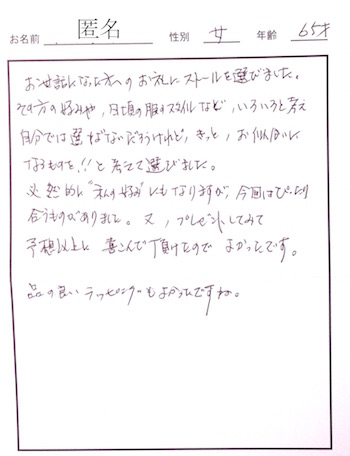 お名前 匿名 性別 女 年齢 65才
お世話になった方へのお礼にストールを選びました。
その方の好みや、日頃の服のスタイルなど、いろいろと考え
自分では選ばないだろうけれど、きっと、お似合いに
なるものを!!と考えて選びました。
必然的に“私の好み”にもなりますが、今回はぴったり
合うものがありました。又、プレゼントしてみて
予想以上に喜こんで頂けたので よかったです。
品の良いラッピングもよかったですね。